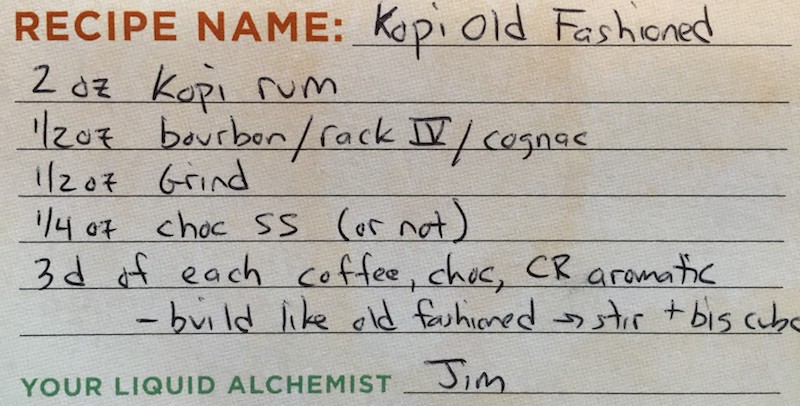 RECIPE NAME: Kopi Old Fashioned
2 oz Kopi rum
1/2 oz bourbon/rack IV/cognac
1/2 oz Grind
1/4 oz choc SS (or not)
3d of each coffee, choc, CR aromatic
- build like old fashioned → stir + big cube
YOUR LIQUID ALCHEMIST Jim